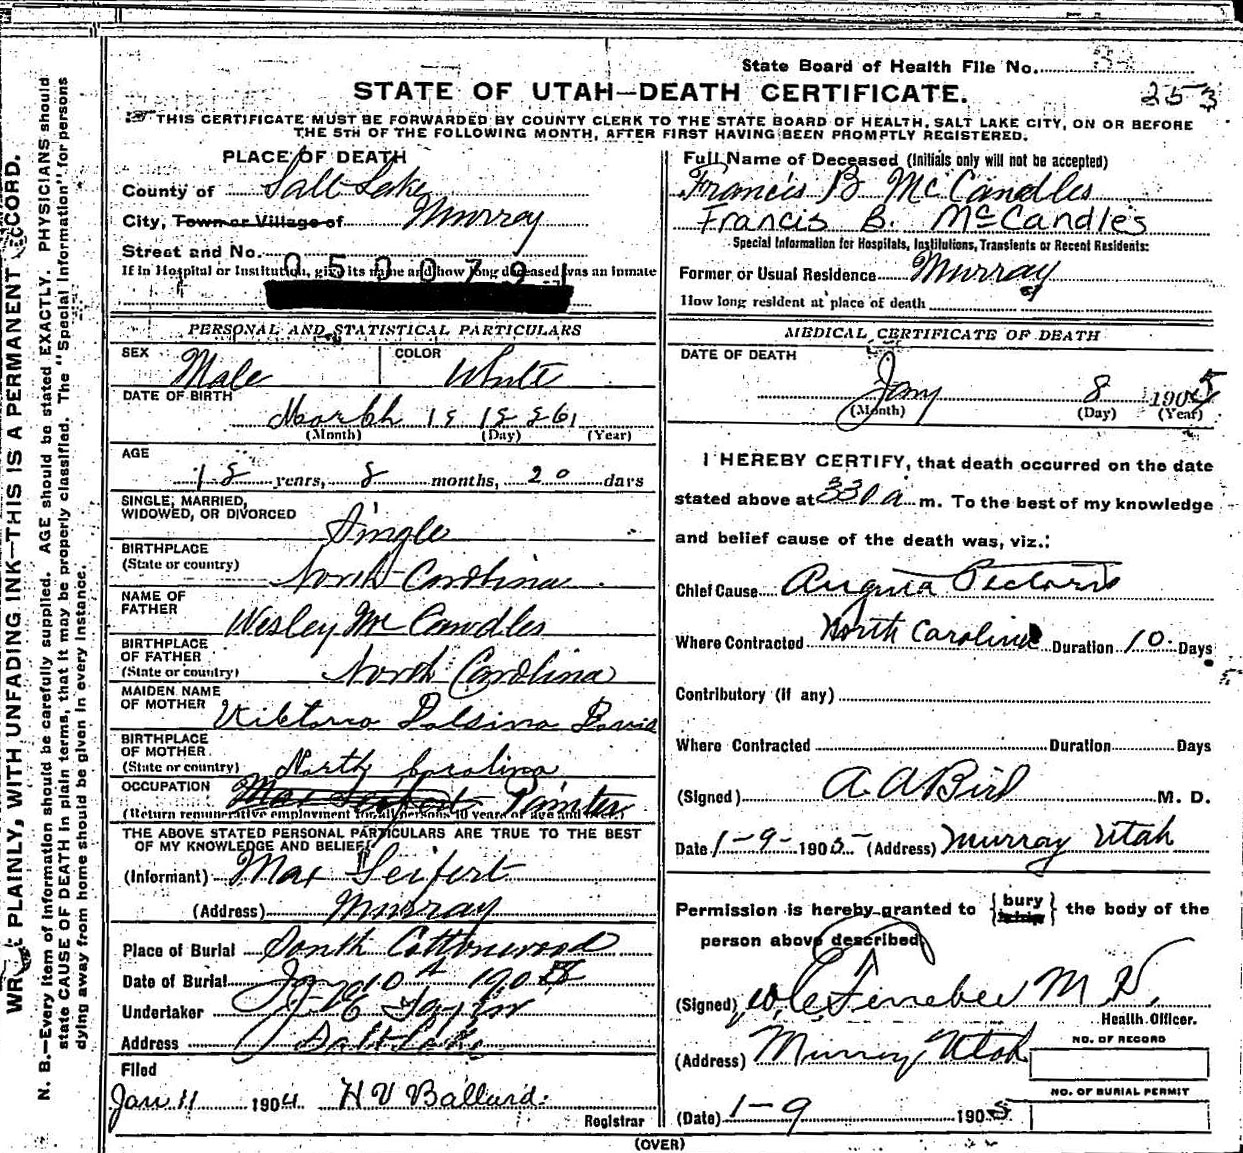 State Board of Health File No.
STATE OF UTAH—DEATH CERTIFICATE.
253
THIS CERTIFICATE MUST BE FORWARDED BY COUNTY CLERK TO THE STATE BOARD OF HEALTH, SALT LAKE CITY, ON OR BEFORE
THE 5TH OF THE FOLLOWING MONTH, AFTER FIRST HAVING BEEN PROMPTLY REGISTERED.
WRITE PLAINLY, WITH UNFADING INK—THIS IS A PERMANENT RECORD.
N. B.—Every item of information should be carefully supplied. AGE should be stated EXACTLY. PHYSICIANS should
state CAUSE OF DEATH in plain terms, that it may be properly classified. The "Special Information" for persons
dying away from home should be given in every instance.
PLACE OF DEATH
County of Salt Lake
City, Town or Village of Murray
Street and No.
If in Hospital or Institution, give its name and how long deceased was an inmate
0500791
PERSONAL AND STATISTICAL PARTICULARS
SEX Male COLOR White
DATE OF BIRTH
March 18 1886
(Month) (Day) (Year)
AGE
18 years, 8 months, 20 days
SINGLE, MARRIED,
WIDOWED, OR DIVORCED Single
BIRTHPLACE
(State or country) North Carolina
NAME OF
FATHER Wesley McCandles
BIRTHPLACE
OF FATHER
(State or country) North Carolina
MAIDEN NAME
OF MOTHER Viktorra Dalsina Davis
BIRTHPLACE
OF MOTHER
(State or country) North Carolina
OCCUPATION Max Seifert Painter
(Return remunerative employment for all persons 10 years of age and over.)
THE ABOVE STATED PERSONAL PARTICULARS ARE TRUE TO THE BEST
OF MY KNOWLEDGE AND BELIEF
(Informant) Max Seifert
(Address) Murray
Place of Burial South Cottonwood
Date of Burial Jan 10th 1905
Undertaker E Taylor
Address Salt Lake
Filed
Jan 11 1904 H V Ballard.
Registrar
Full Name of Deceased (Initials only will not be accepted)
Francis B McCandles
Francis B. McCandles
Special Information for Hospitals, Institutions, Transients or Recent Residents:
Former or Usual Residence Murray
How long resident at place of death
MEDICAL CERTIFICATE OF DEATH
DATE OF DEATH
Jany 8 1905
(Month) (Day) (Year)
I HEREBY CERTIFY, that death occurred on the date
stated above at 330 a m. To the best of my knowledge
and belief cause of the death was, viz.:
Chief Cause Angina Pectoris
Where Contracted North Carolina Duration 10 Days
Contributory (if any)
Where Contracted Duration Days
(Signed) A. A Bird M. D.
Date 1-9-1905 (Address) Murray Utah
Permission is hereby granted to { bury } the body of the
person above described
(Signed) M D
Health Officer.
(Address) Murray, Utah
NO. OF RECORD
NO. OF BURIAL PERMIT
(Date) 1-9 1905
(OVER)